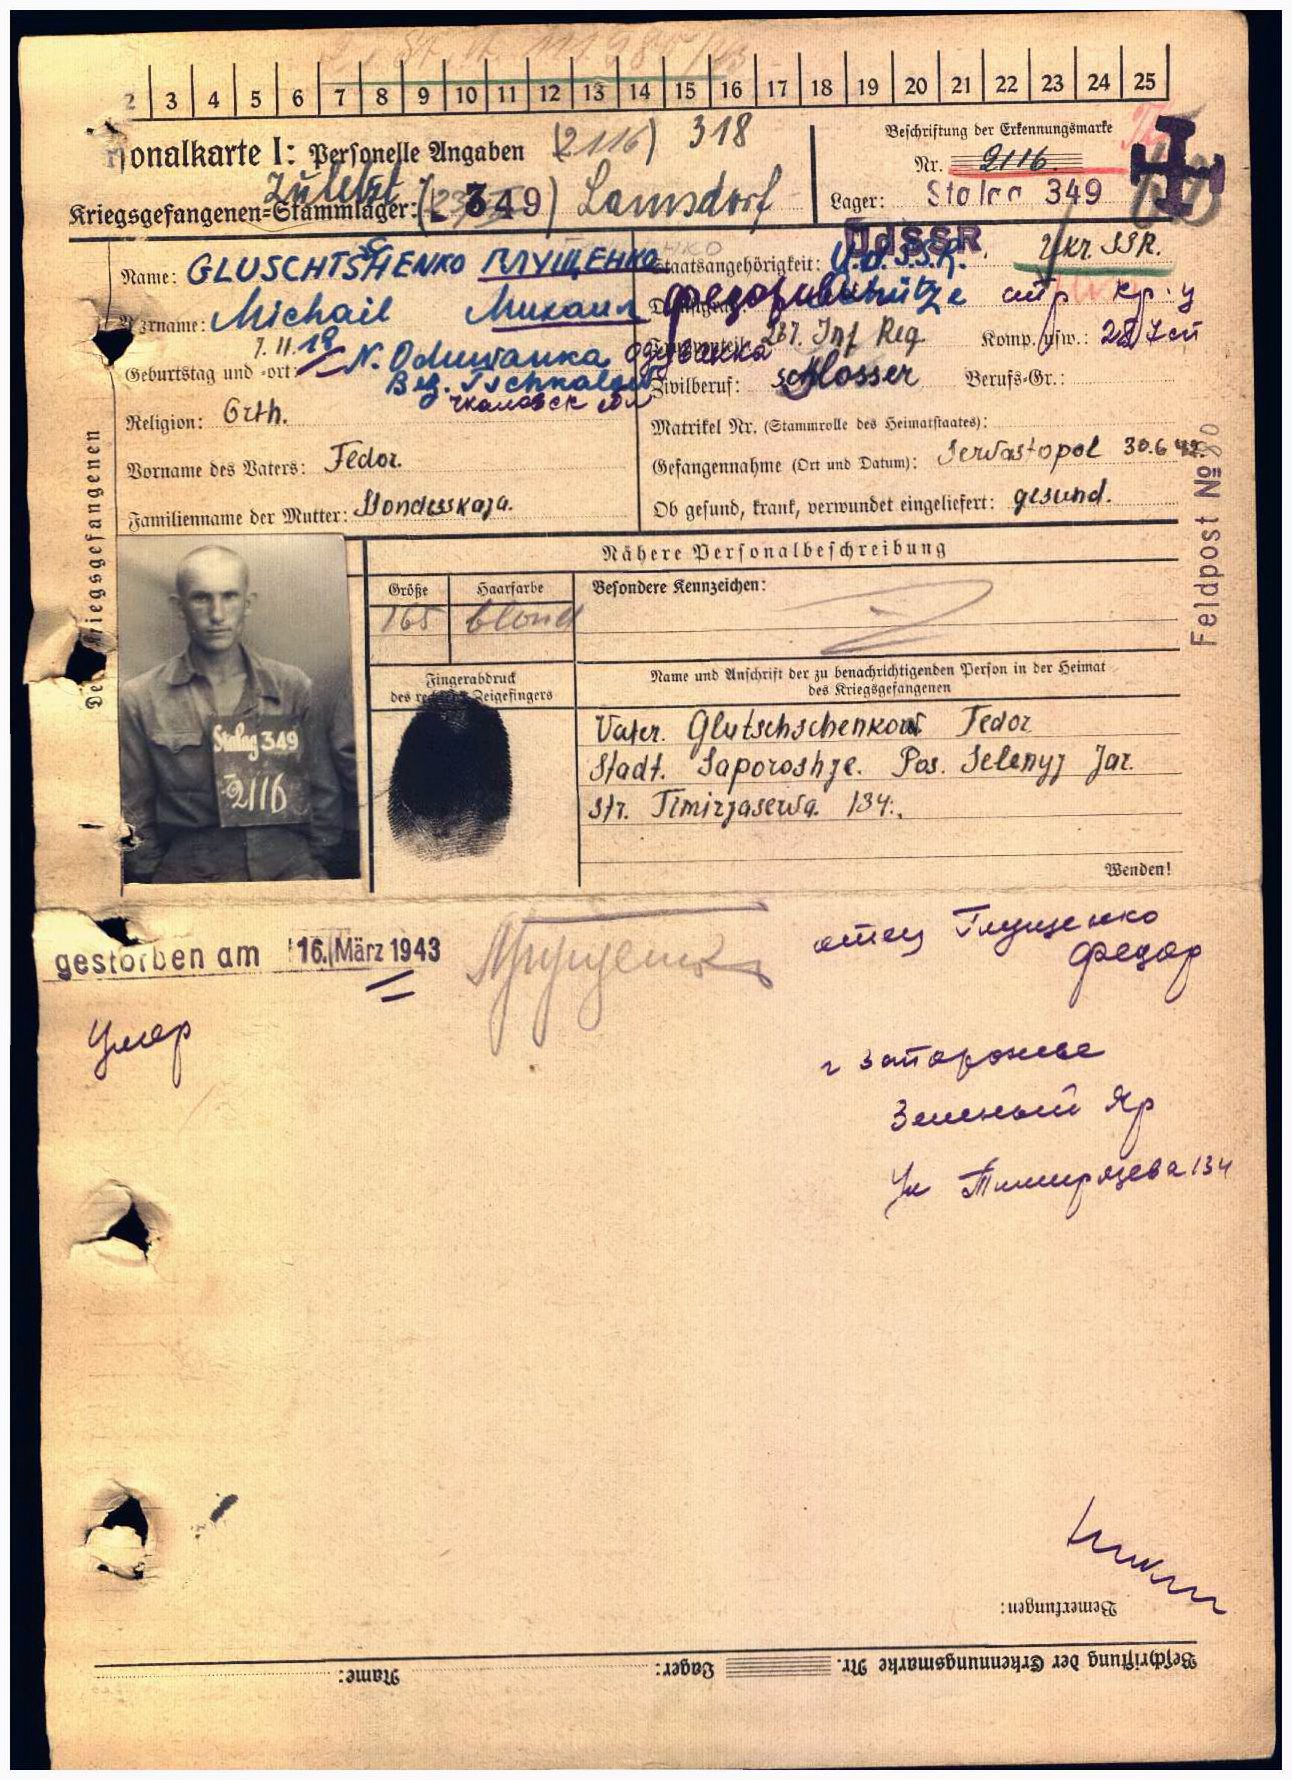 2 3 4 5 6 7 8 9 10 11 12 13 14 15 16 17 18 19 20 21 22 23 24 25
onalkarte I: Personelle Angaben (2116) 318
Beschriftung der Erkennungsmarke
Nr. 2116
Kriegsgefangenen-Stammlager: 349) Lamsdorf
Lager: Stalag 349
Name: GLUSCHTSCHENKO ГЛУЩЕНКО
Staatsangehörigkeit: U.d.S.S.R. UdSSR Ukr. SSR.
Vorname: Michail Михаил Федорович
Schütze стр кр-ц
237. Inf Reg Komp. usw.:
Geburtstag und -ort: 7.11.19 N. Oduwanka
Bez. Tschkalow
Чкаловск обл
Zivilberuf: Schlosser Berufs-Gr.:
Religion: Orth.
Matrikel Nr. (Stammrolle des Heimatstaates):
Vorname des Vaters: Fedor.
Gefangennahme (Ort und Datum): Sewastopol 30.6.42.
Familienname der Mutter:
Ob gesund, krank, verwundet eingeliefert: gesund.
Des Kriegsgefangenen
Feldpost №
Nähere Personalbeschreibung
Größe Haarfarbe Besondere Kennzeichen:
165 blond
Fingerabdruck
des rechten Zeigefingers
Name und Anschrift der zu benachrichtigenden Person in der Heimat
des Kriegsgefangenen
Stalag 349
2116
Vater. Glutschschenkow Fedor
Stadt. Saporoshje. Pos. Selenyj Jar.
Str. Timirjasewa. 134.
Wenden!
gestorben am 16. März 1943
отец Глущенко
Федор
Умер
г Запорожье
Зеленый Яр
Ул Тимирязева 134
Bemerkungen:
Beschriftung der Erkennungsmarke Nr. Lager: Name: